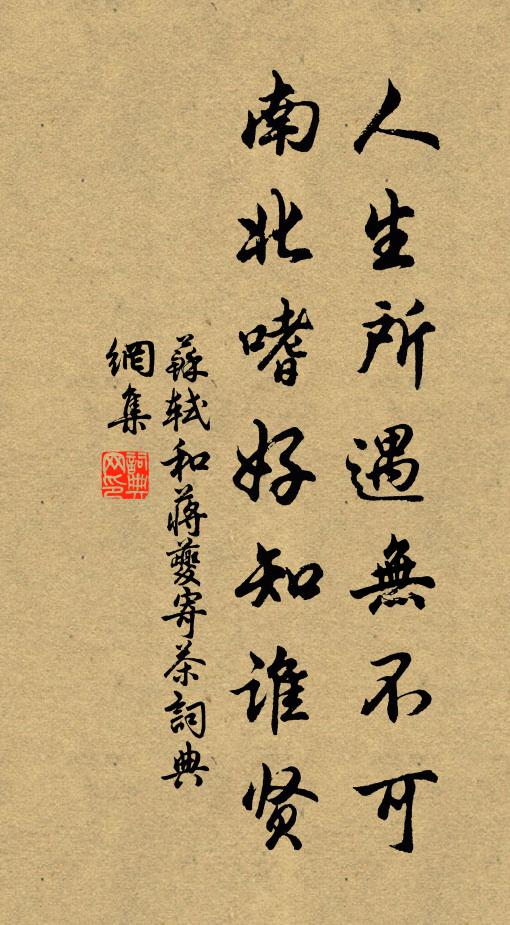 人生所遇無不可
南北嗜好知谁贤
蘇軾和蔣夔寄茶詞典
網集
詞典网印